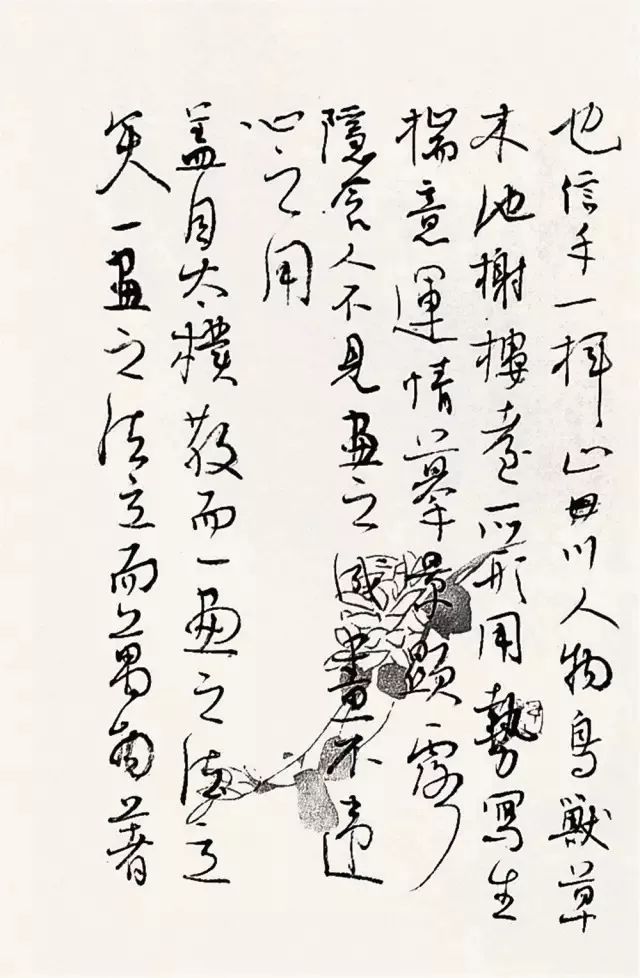 也信手一揮山川人物鳥獸草
木池榭樓臺取形用勢寫生
揣意運情摹景顯露
隱含人不見畫之成畫不違
心之用
蓋自太樸散而一畫之法立
矣一畫之法立而萬物著